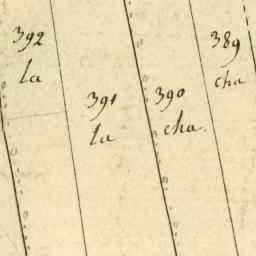 392
la
391
la
390
cha.
389
cha